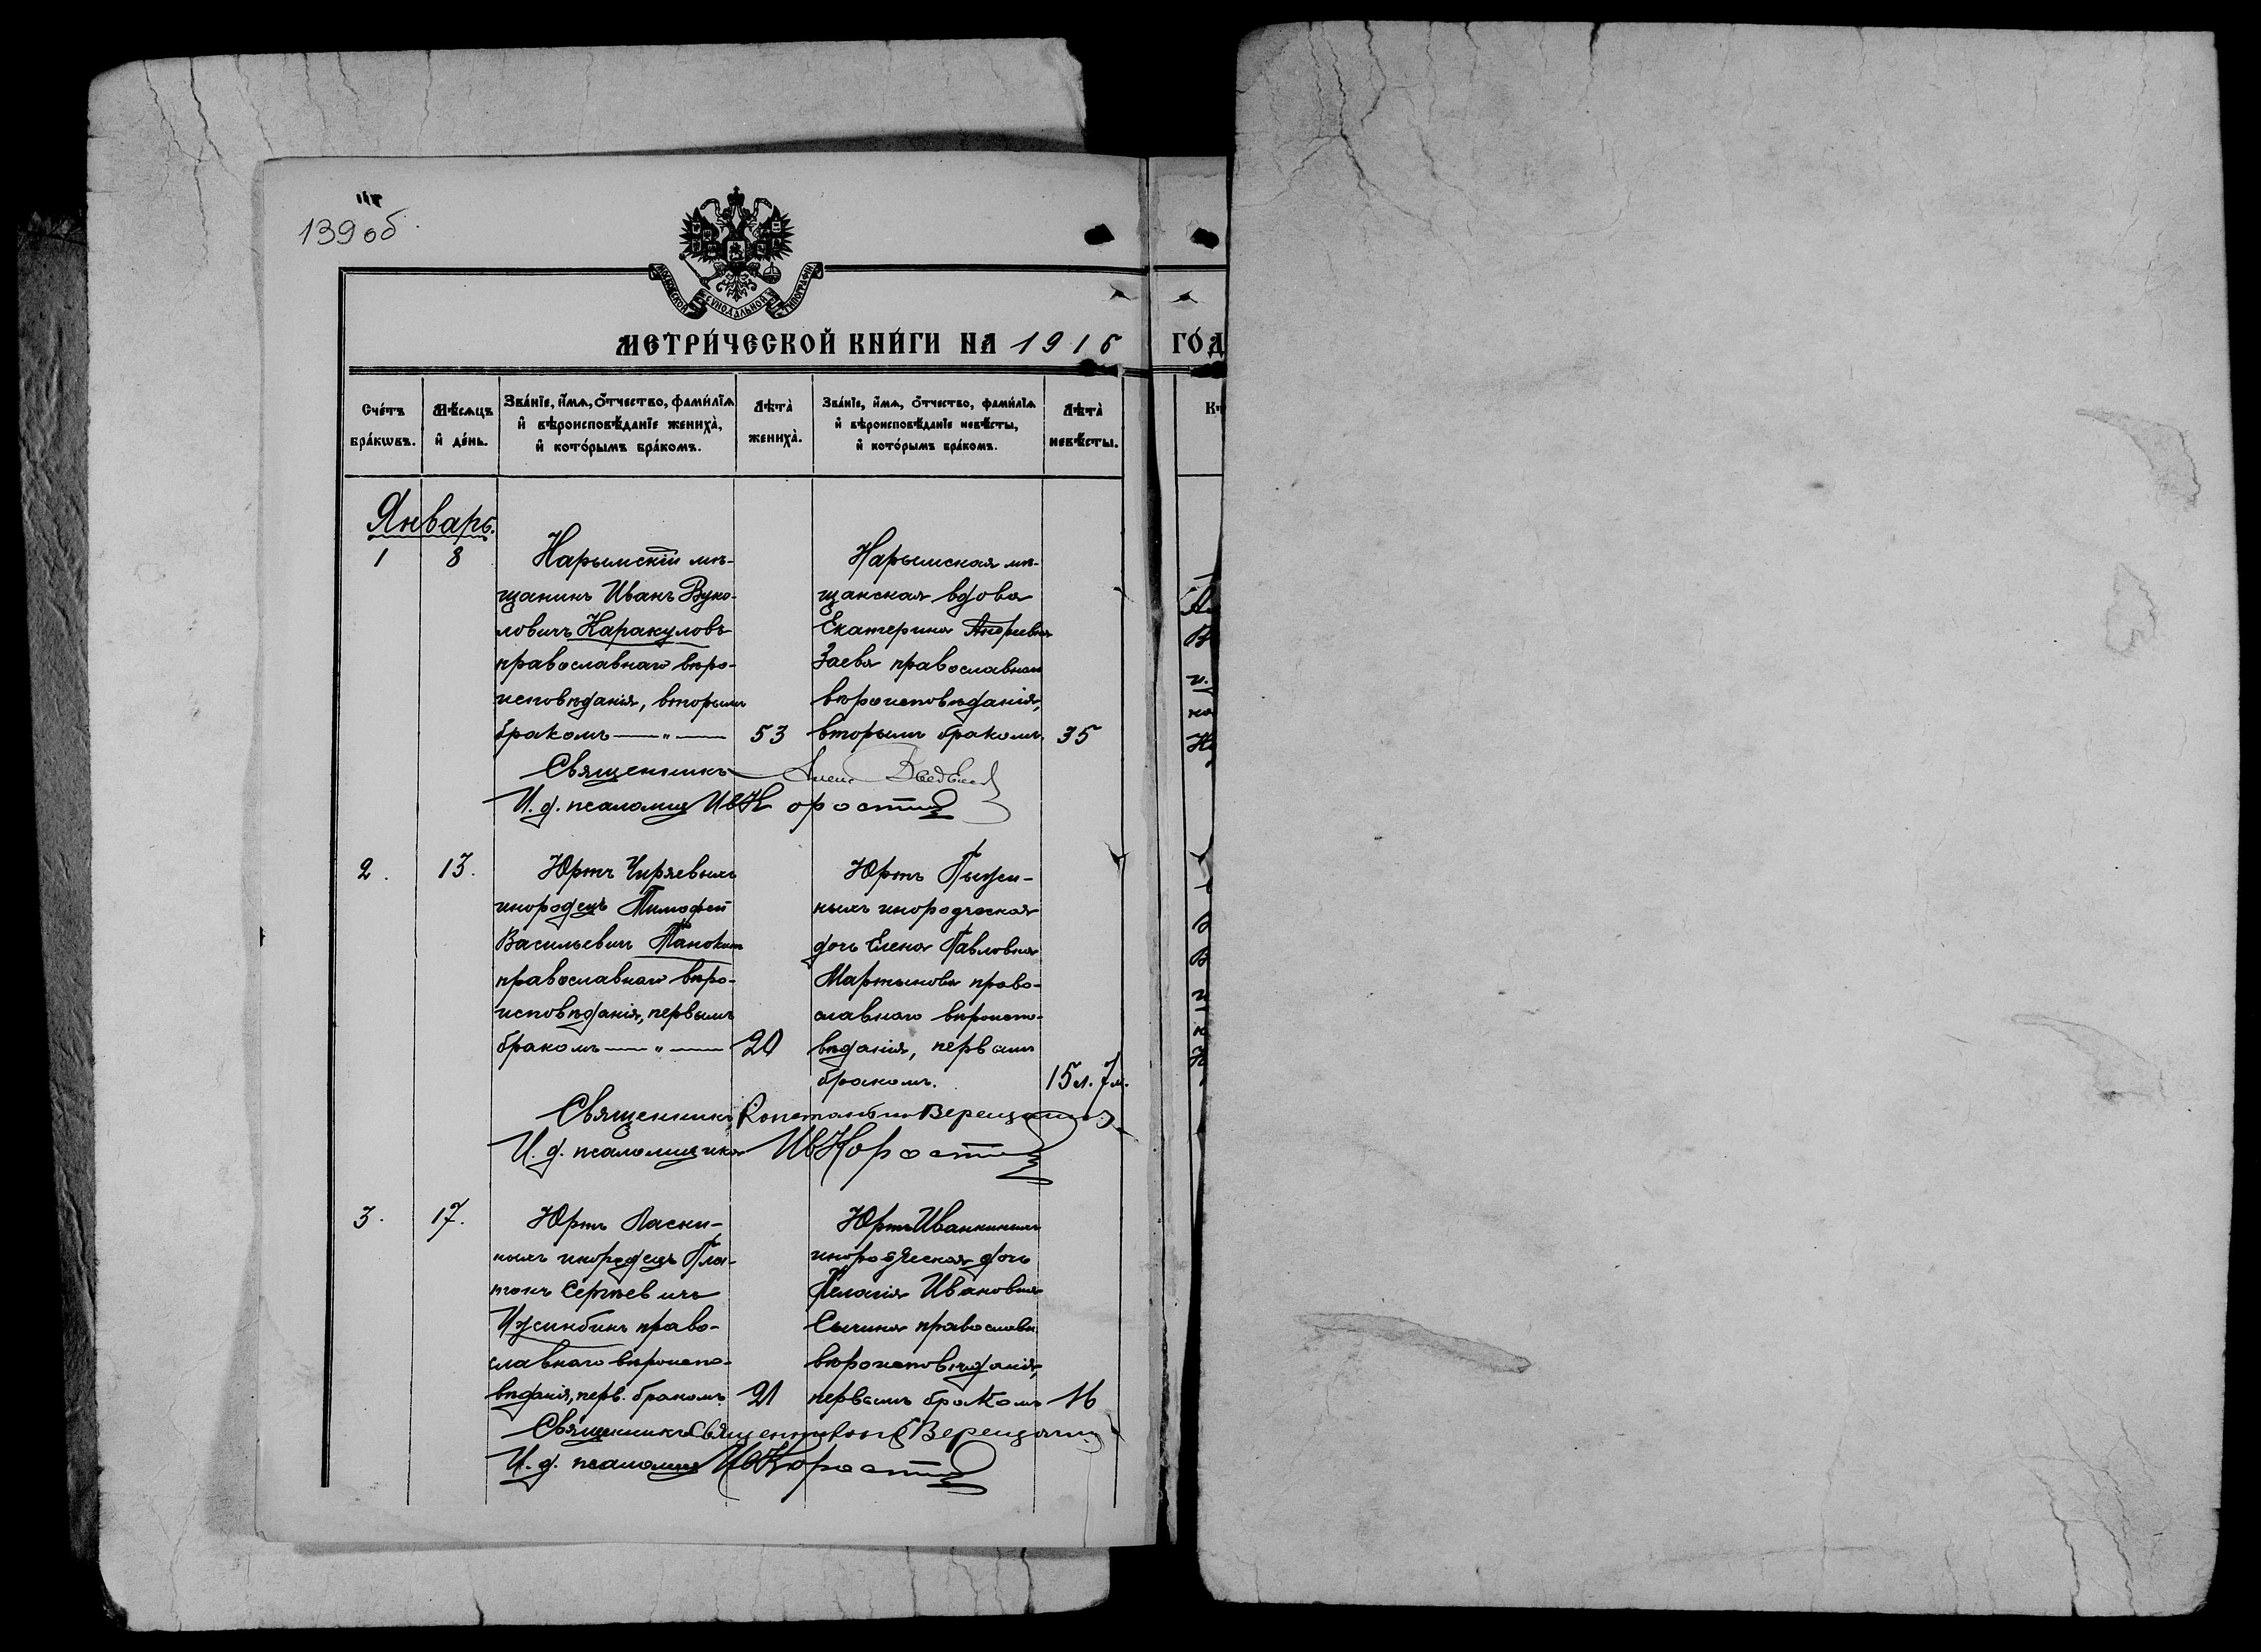 139 об
МОСКОВСКОЙ СѴНОДАЛЬНОЙ ТИПОГРАФІИ
МЕТРИ́ЧЕСКОЙ КНИ́ГИ НА 1916 ГО́Д
Сче́тъ бра́кѡвъ.
Мѣ́сѧцъ и҆ де́нь.
Зва́нїе, и҆́мѧ, ѻ҆́тчество, фами́лїѧ и҆ вѣроисповѣ́данїе жениха̀, и҆ кото́рымъ бра́комъ.
Лѣта̀ жениха̀.
Зва́нїе, и҆́мѧ, ѻ҆́тчество, фами́лїѧ и҆ вѣроисповѣ́данїе невѣ́сты, и҆ кото́рымъ бра́комъ.
Лѣта̀ невѣ́сты.
Январь.
1 8
Нарымскій мѣ-
щанинъ Иванъ Вуко-
ловичъ Каракуловъ
православнаго вѣро-
исповѣданія, вторымъ
бракомъ —"— 53
Нарымская мѣ-
щанская вдова
Екатерина Андреевна
Заева православнаго
вѣроисповѣданія,
вторымъ бракомъ. 35
Священникъ
И. д. псаломщ ИвКорости
2. 13.
Юртъ Чиряевыхъ
инородецъ Тимофей
Васильевичъ
православнаго вѣро-
исповѣданія, первымъ
бракомъ —"— 20
Юртъ
ныхъ инородческая
дочь Елена Павловна
Мартынова право-
славнаго вѣроиспо-
вѣданія, первымъ
бракомъ. 15 л. 7 м.
Священникъ Константинъ Верещагинъ
И. д. псаломщика ИвКорости
3. 17.
Юртъ Ласки-
ныхъ инородецъ Пла-
тонъ Сергѣевичъ
Ижинбинъ право-
славнаго вѣроиспо-
вѣданія, перв. бракомъ 21
Юртъ Иванкиныхъ
инородческая дочь
Пелагія Ивановна
Сычина православн
вѣроисповѣданія,
первымъ бракомъ 16
Священникъ Верещагинъ
И. д. псаломщ ИвКорости